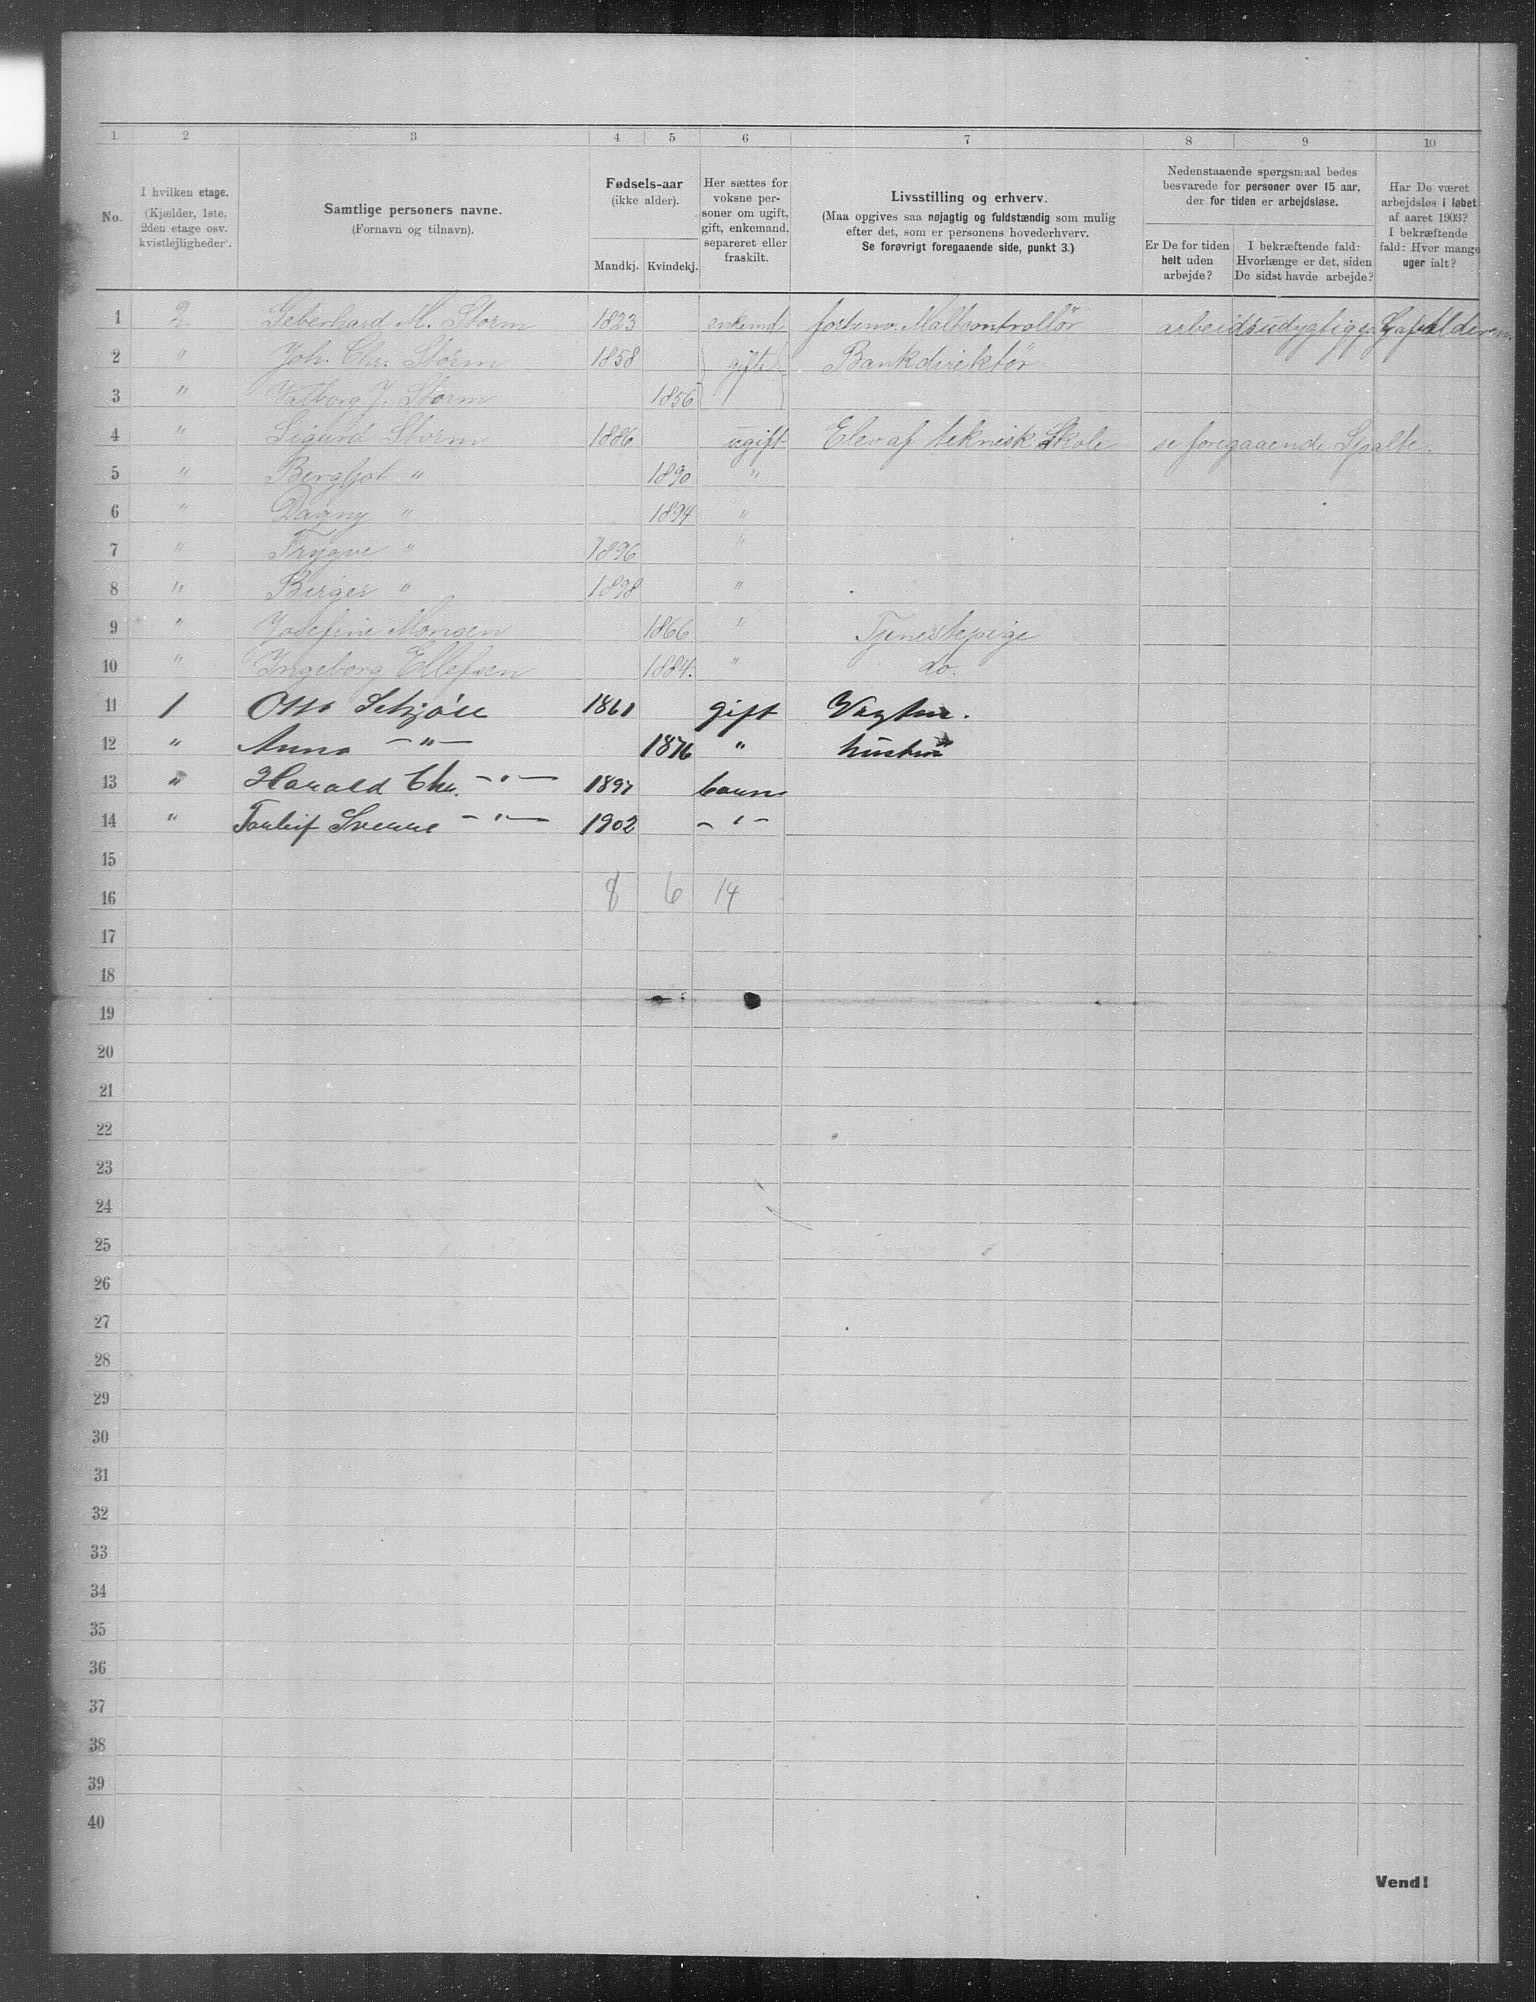 1 2 3 4 5 6 7 8 9 10
No.
I hvilken etage.
(Kjælder, 1ste,
2den etage osv.
kvistlejligheder).
Samtlige personers navne.
(Fornavn og tilnavn).
Fødsels-aar
(ikke alder).
Mandkj. Kvindekj.
Her sættes for
voksne per-
soner om ugift,
gift, enkemand,
separeret eller
fraskilt.
Livsstilling og erhverv.
(Maa opgives saa nøjagtig og fuldstændig som mulig
efter det, som er personens hovederhverv.
Se forøvrigt foregaaende side, punkt 3.)
Nedenstaaende spørgsmaal bedes
besvarede for personer over 15 aar,
der for tiden er arbejdsløse.
Er De for tiden
helt uden
arbejde?
I bekræftende fald:
Hvorlænge er det, siden
De sidst havde arbejde?
Har De været
arbejdsløs i løbet
af aaret 1903?
I bekræftende
fald: Hvor mange
uger ialt?
1 2 Geberhard M. Storm 1823 enkemd Maltcontrollör arbeidsudygtig Alder
2 " Joh. Chr. Storm 1858 gift Bankdirektör
3 " Valborg J. Storm 1856
4 " Sigurd Storm 1886 ugift Elev af teknisk Skole se foregaaende Spalte.
5 " Bergljot " 1890 "
6 " Dagny " 1894 "
7 " Trygve " 1896 "
8 " Birger " 1898 "
9 " Josefine Monsen 1866 " Tjenestepige
10 " Ingeborg Ellefsen 1884. " do.
11 1 Otto Schjöll 1861 gift Vagtm.
12 " Anna —"— 1876 " hustru
13 " Harald Chr. —"— 1897 barn
14 " Torleif Sverre —"— 1902 —"—
15
16 8 6 14
17
18
19
20
21
22
23
24
25
26
27
28
29
30
31
32
33
34
35
36
37
38
39
40
Vend!